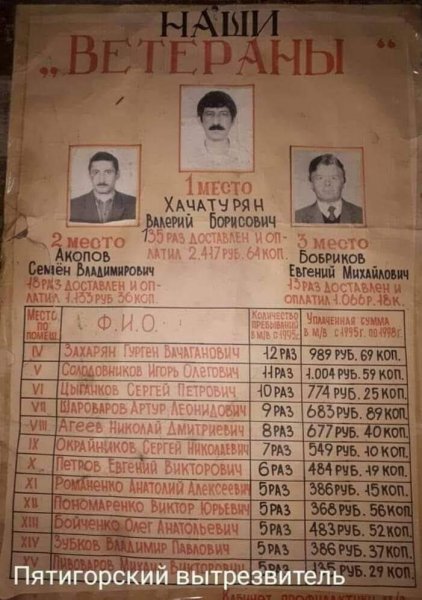 НАШИ
„ВЕТЕРАНЫ“
1 МЕСТО
ХАЧАТУРЯН
ВАЛЕРИЙ БОРИСОВИЧ
135 РАЗ ДОСТАВЛЕН И ОП-
ЛАТИЛ 2.417 РУБ. 64 КОП.
2 МЕСТО
АКОПОВ
СЕМЁН ВЛАДИМИРОВИЧ
18 РАЗ ДОСТАВЛЕН И ОП-
ЛАТИЛ 1.133 РУБ 36 КОП.
3 МЕСТО
БОБРИКОВ
ЕВГЕНИЙ МИХАЙЛОВИЧ
13 РАЗ ДОСТАВЛЕН И
ОПЛАТИЛ 1.066 Р. 18 К.
МЕСТО ПО ПОМЕЩ. Ф.И.О. КОЛИЧЕСТВО ПРЕБЫВАНИЙ В М/В С 1995г. УПЛАЧЕННАЯ СУММА В М/В С 1995г. ПО 1998г.
IV ЗАХАРЯН ГУРГЕН ВАЧАГАНОВИЧ 12 РАЗ 989 РУБ. 69 КОП.
V СОЛОДОВНИКОВ ИГОРЬ ОЛЕГОВИЧ 11 РАЗ 1.004 РУБ. 59 КОП.
VI ЦЫГАНКОВ СЕРГЕЙ ПЕТРОВИЧ 10 РАЗ 774 РУБ. 25 КОП.
VII ШАРОВАРОВ АРТУР ЛЕОНИДОВИЧ 9 РАЗ 683 РУБ. 89 КОП.
VIII АГЕЕВ НИКОЛАЙ ДМИТРИЕВИЧ 8 РАЗ 677 РУБ. 40 КОП.
IX ОКРАЙНИКОВ СЕРГЕЙ НИКОЛАЕВИЧ 7 РАЗ 549 РУБ. 10 КОП.
X ПЕТРОВ ЕВГЕНИЙ ВИКТОРОВИЧ 6 РАЗ 484 РУБ. 19 КОП.
XI РОМАНЕНКО АНАТОЛИЙ АЛЕКСЕЕВИЧ 5 РАЗ 386 РУБ. 15 КОП.
XII ПОНОМАРЕНКО ВИКТОР ЮРЬЕВИЧ 5 РАЗ 368 РУБ. 56 КОП.
XIII БОЙЧЕНКО ОЛЕГ АНАТОЛЬЕВИЧ 5 РАЗ 483 РУБ. 52 КОП.
XIV ЗУБКОВ ВЛАДИМИР ПАВЛОВИЧ 5 РАЗ 386 РУБ. 37 КОП.
XV ПИВОВАРОВ МИХАИЛ ВИКТОРОВИЧ 5 РАЗ 135 РУБ. 29 КОП.
Пятигорский вытрезвитель
КАБИНЕТ ПРОФИЛАКТИКИ